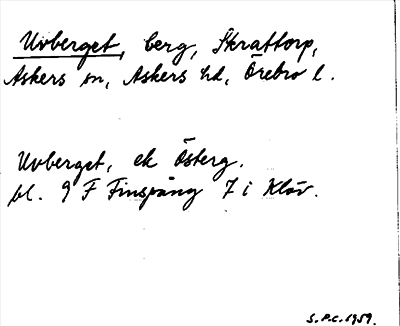 Uvberget, berg, Skrattorp,
Askers sn, Askers hd, Örebro l.
Uvberget, ek Österg.
bl. 9 F Finspång 7 i Kläv.
S.P.C. 1959.